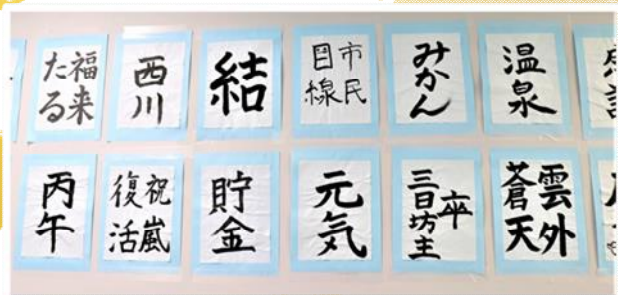 福来
たる
西川
結
市民
目線
みかん
温泉
丙午
祝嵐
復活
貯金
元気
卒
三日坊主
雲外
蒼天